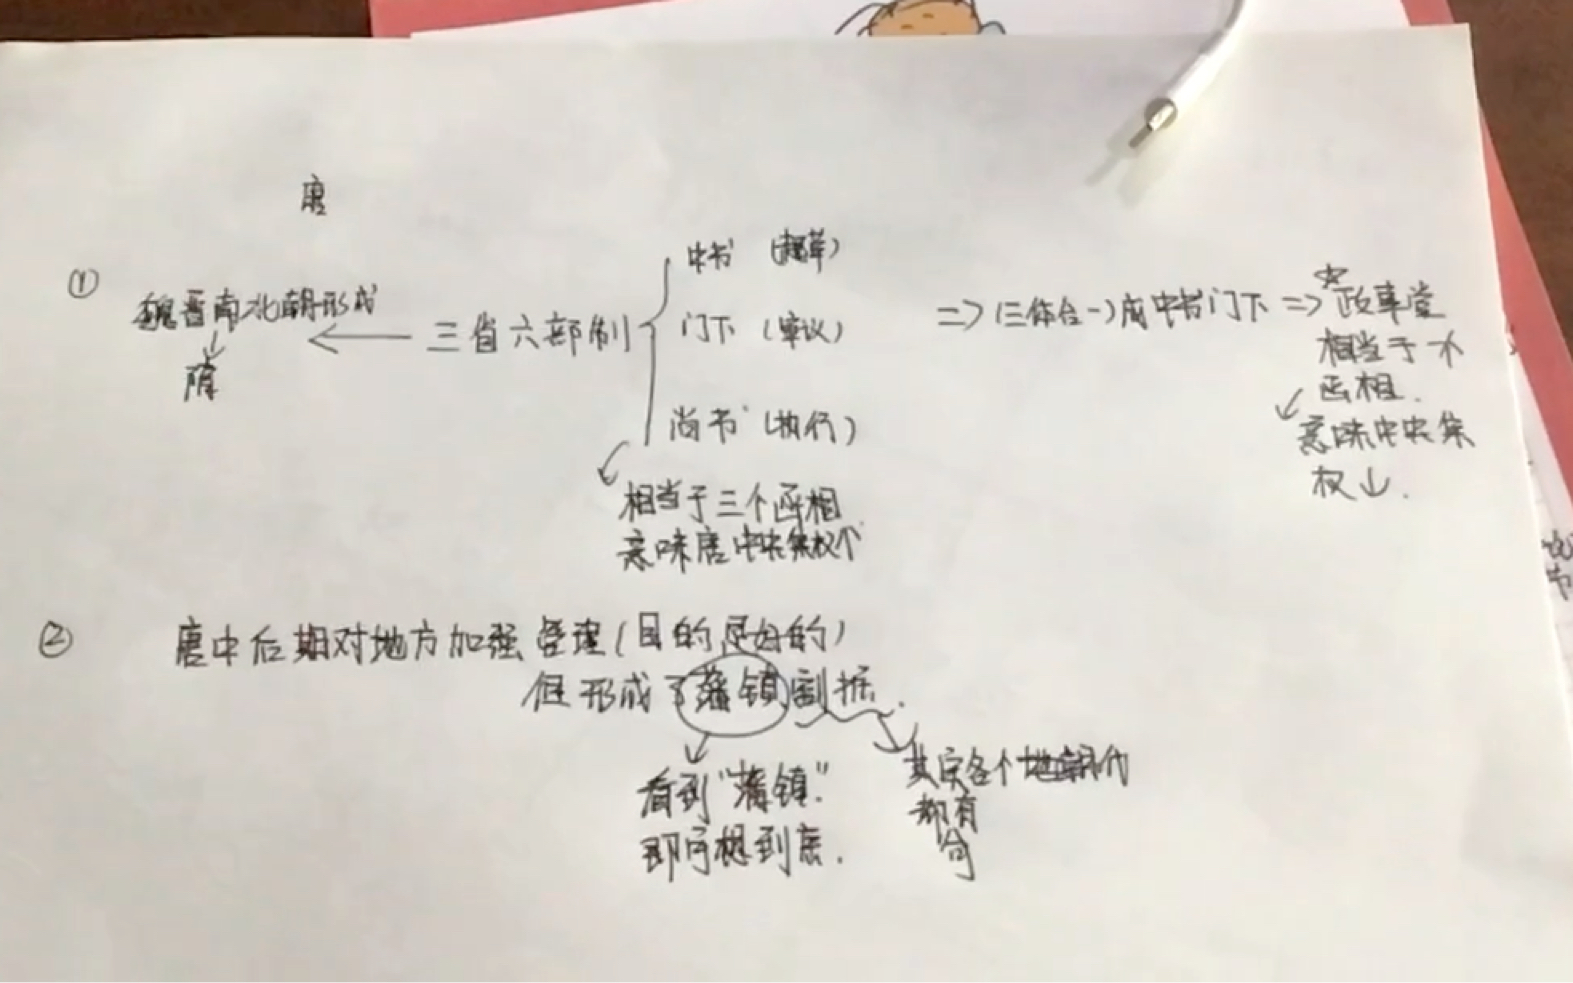 唐
①
魏晋南北朝形成
↓
隋
← 三省六部制
中书 (起草)
门下 (审议)
尚书 (执行)
↙
相当于三个丞相
意味唐中央集权↑
=> (三体合一) 成中书门下 =>
☆
政事堂
相当于一个
丞相.
↙
意味中央集
权↓.
② 唐中后期对地方加强管理(目的是好的)
但形成了藩镇割据.
看到"藩镇"
即可想到唐.
其实各个朝代
都有